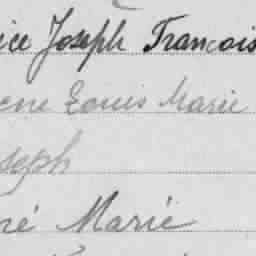 ice Joseph François
ene Louis Marie
seph
ré Marie